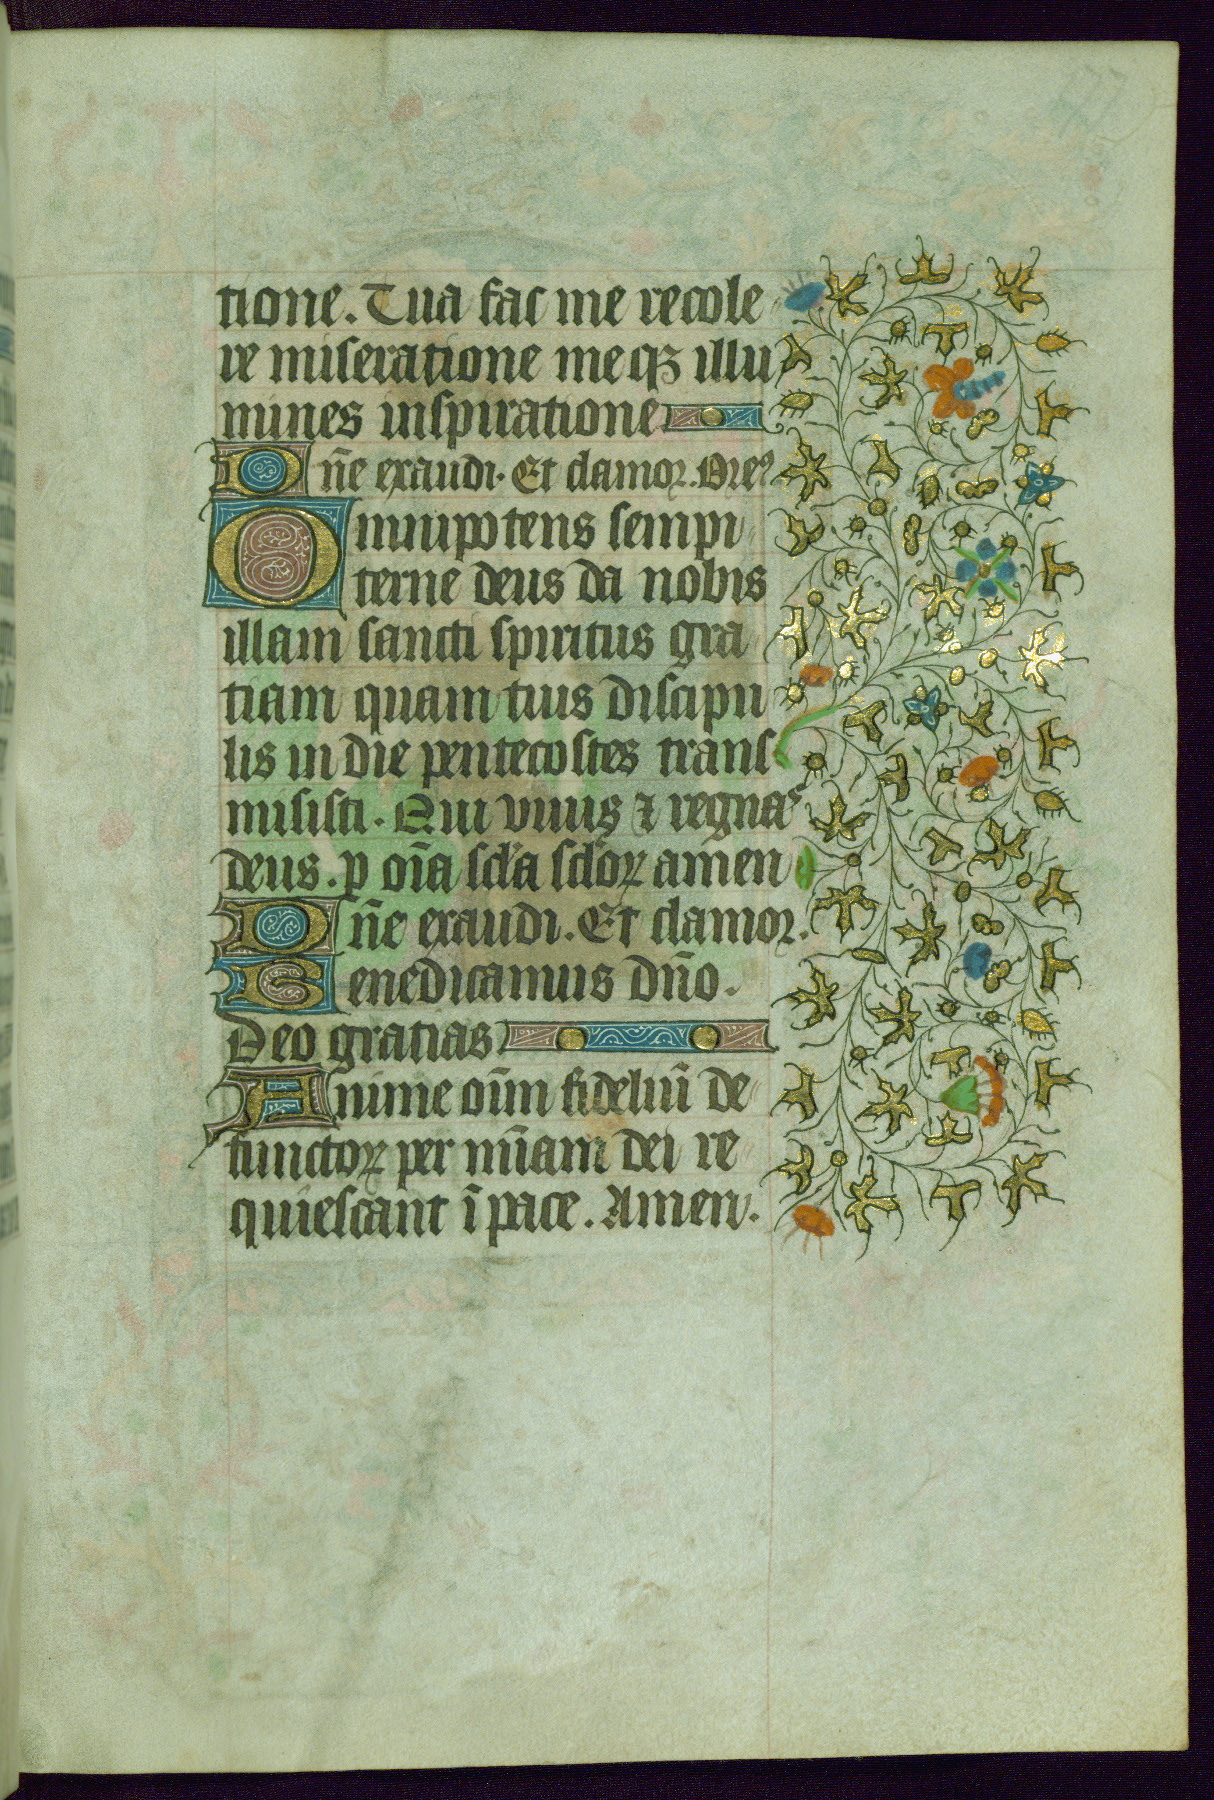 tione. Tua fac me recole
re miseratione meqꝫ illu
mines inspiratione
Dn̄e exaudi. Et clamor. Oreꝰ
Omnipotens sempi
terne deus da nobis
illam sancti spiritus gra
tiam quam tuis discipu
lis in die pentecostes trans
misisti. Qui viuis ⁊ regnas
deus. p om̄a scl'a scl'oꝝ amen
Dn̄e exaudi. Et clamor.
Benedicamus dn̄o.
Deo gratias
Anime oīm fideliū de
functoꝝ per mīam dei re
quiescant ī pace. Amen.